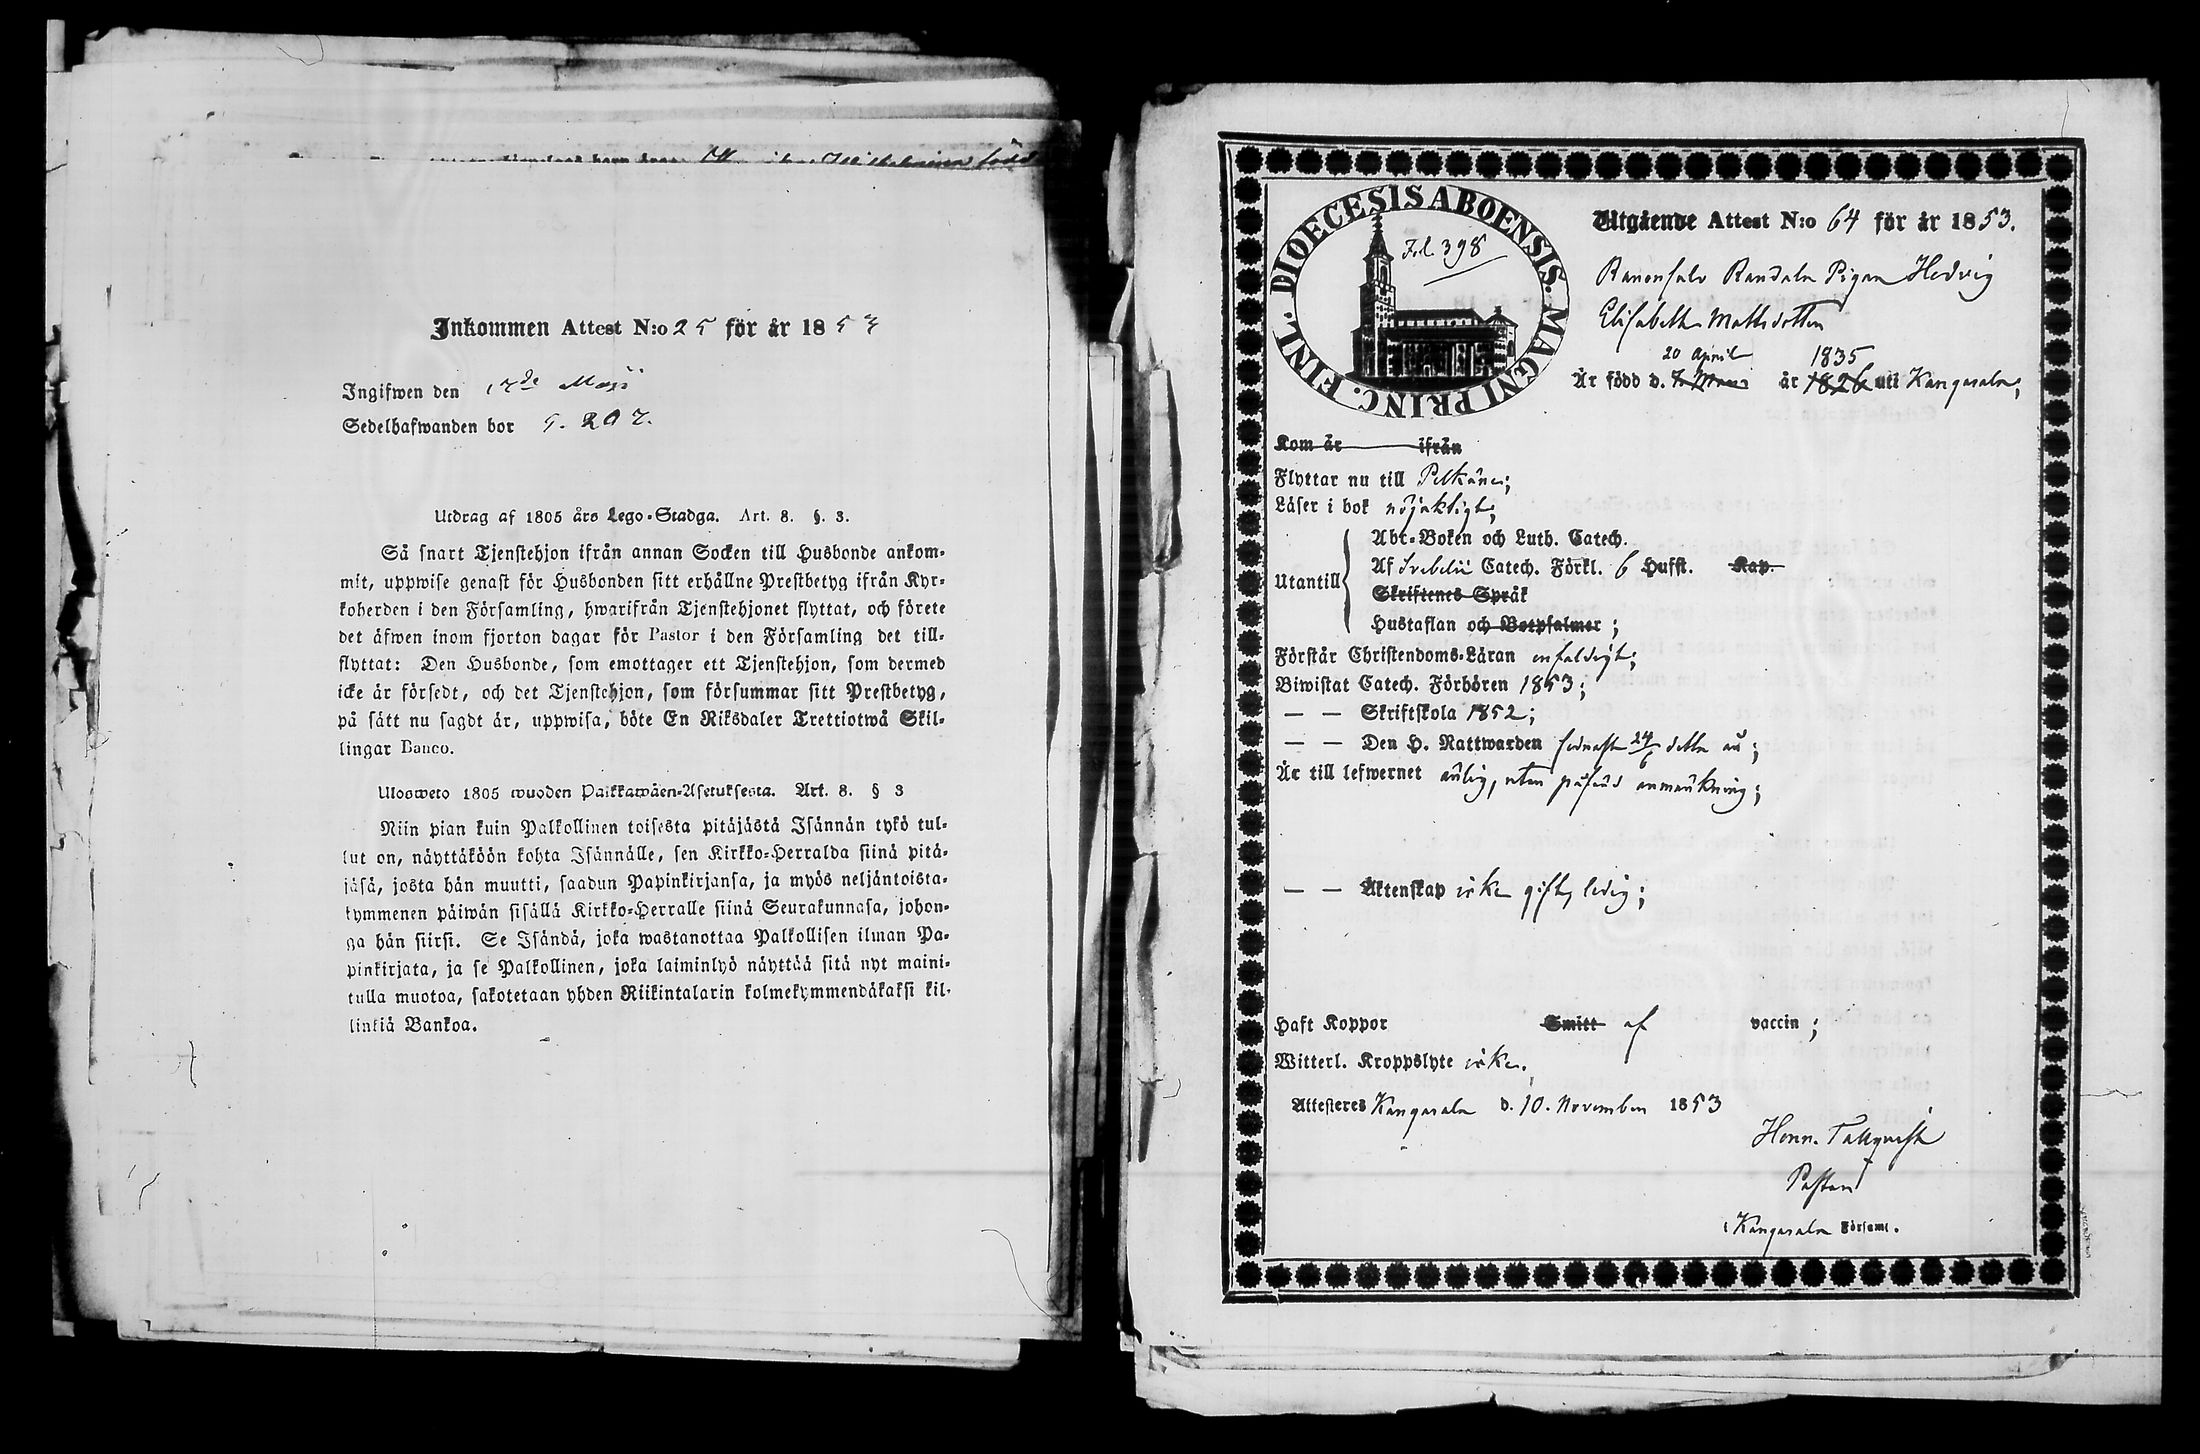 Wilhelmina född
Inkommen Attest N:o 25 för år 1853
Ingifwen den 17de Maji
Sedelhafwanden bor
Utdrag af 1805 års Lego-Stadga. Art. 8. §. 3.
Så snart Tjenstehjon ifrån annan Socken till Husbonde ankom-
mit, uppwise genast för Husbonden sitt erhållne Prestbetyg ifrån Kyr-
koherden i den Församling, hwarifrån Tjenstehjonet flyttat, och förete
det äfwen inom fjorton dagar för Pastor i den Församling det till-
flyttat: Den Husbonde, som emottager ett Tjenstehjon, som dermed
icke är försedt, och det Tjenstehjon, som försummar sitt Prestbetyg,
på sätt nu sagdt är, uppwisa, böte En Riksdaler Trettiotwå Skil-
lingar Banco.
Ulosweto 1805 wuoden Palkkawäen-Asetuksesta. Art. 8. § 3
Niin pian kuin Palkollinen toisesta pitäjästä Isännän tykö tul-
lut on, näyttäköön kohta Isännälle, sen Kirkko-Herralda siinä pitä-
jäsä, josta hän muutti, saadun Papinkirjansa, ja myös neljäntoista-
kymmenen päiwän sisällä Kirkko-Herralle siinä Seurakunnasa, johon-
ga hän siirsi. Se Isändä, joka wastanottaa Palkollisen ilman Pa-
pinkirjata, ja se Palkollinen, joka laiminlyö näyttää sitä nyt maini-
tulla muotoa, sakotetaan yhden Riikintalarin kolmekymmendäkaksi kil-
linkiä Bankoa.
DIOECESIS ABOENSIS. MAGNI PRINC. FINL.
Fol. 398
Utgående Attest N:o 64 för år 1853.
Pigan Hedvig
Elisabeth Mattsdotter
20 April 1835
Är född d. år 1826 uti Kangasala;
Kom år ifrån
Flyttar nu till Pelkäne;
Läser i bok nöjaktigt;
Abc-Boken och Luth. Catech.
Utantill Af Svebelii Catech. Förkl. 6 Hufst. Kap.
Skriftenes Språk
Hustaflan och Botpsalmer ;
Förstår Christendoms-Läran enfaldigt;
Biwistat Catech. Förhören 1853;
— — Skriftskola 1852;
— — Den H. Nattwarden sednast 24/6 detta år;
Är till lefwernet ärlig, utan påförd anmärkning;
— — Äktenskap icke gift, ledig;
Haft Koppor Smitt af vaccin ;
Witterl. Kroppslyte icke.
Attesteres Kangasala d. 10. November 1853
Henr. Tallqvist
Pastor
i Kangasala Församl.